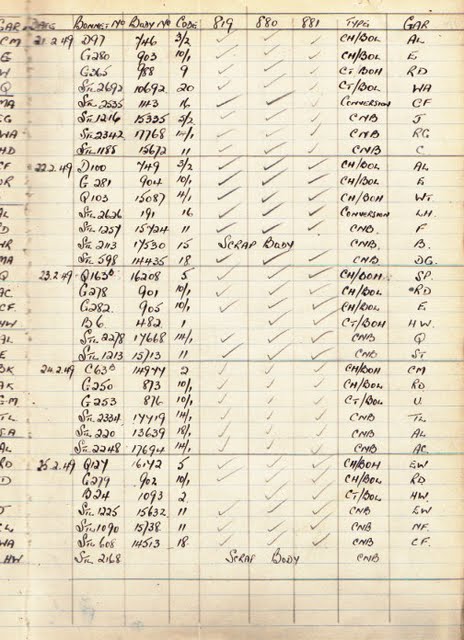 GAR. DATE BONNET No BODY No CODE 819 880 881 TYPE GAR
CM 21.2.49 D97 746 3/2 ✓ ✓ ✓ CH/BOL AL
G G280 903 10/1 ✓ ✓ ✓ CH/BOL E
W G365 988 9 ✓ ✓ ✓ CT/BOH RD
Q STL 2692 10692 20 ✓ ✓ ✓ CT/BOL WA
MA STL 2535 1143 16 ✓ ✓ ✓ CONVERSION CF
EG STL 1216 15335 5/2 ✓ ✓ ✓ CNB J
WA STL 2342 17768 14/1 ✓ ✓ ✓ CNB RG
HD STL 1185 15672 11 ✓ ✓ ✓ CNB C
CF 22.2.49 D100 749 3/2 ✓ ✓ ✓ CH/BOL AL
OR G281 904 10/1 ✓ ✓ ✓ CH/BOL E
Q103 15087 4/1 ✓ ✓ ✓ CH/BOH WT
AL STL 2626 191 16 ✓ ✓ ✓ CONVERSION LH.
D STL 1257 15724 11 ✓ ✓ ✓ CNB. F
HR STL 2113 17530 15 SCRAP BODY CNB. B.
MA STL 598 14435 18 ✓ ✓ ✓ CNB DG.
Q 23.2.49 Q163 16208 5 ✓ ✓ ✓ CH/BOH SP.
AC. G278 901 10/1 ✓ ✓ ✓ CH/BOL RD
CF. G282 905 10/1 ✓ ✓ ✓ CH/BOL E.
HW B6 482 1 ✓ ✓ CT/BOH HW.
AL STL 2278 17668 14/1 ✓ ✓ ✓ CNB Q
E STL 1213 15713 11 ✓ ✓ ✓ CNB ST
BK 24.2.49 C63 14944 2 ✓ ✓ ✓ CH/BOH CM
AK G250 873 10/1 ✓ ✓ ✓ CH/BOL RD
GM G253 876 10/1 ✓ ✓ ✓ CT/BOL U.
TL STL 2334 17719 14/1 ✓ ✓ ✓ CNB TL
SA STL 220 13639 18/1 ✓ ✓ ✓ CNB AL
AL STL 2248 17694 14/1 ✓ ✓ ✓ CNB AC
RD 25.2.49 Q127 16172 5 ✓ ✓ ✓ CH/BOH EW
D G279 902 10/1 ✓ ✓ ✓ CH/BOL RD
B24 1093 2 ✓ ✓ ✓ CT/BOL HW.
J STL 1225 15632 11 ✓ ✓ ✓ CNB EW
CL STL 1090 15738 11 ✓ ✓ ✓ CNB NF.
WA STL 608 14513 18. ✓ ✓ ✓ CNB CF.
HW STL 2168 SCRAP BODY CNB